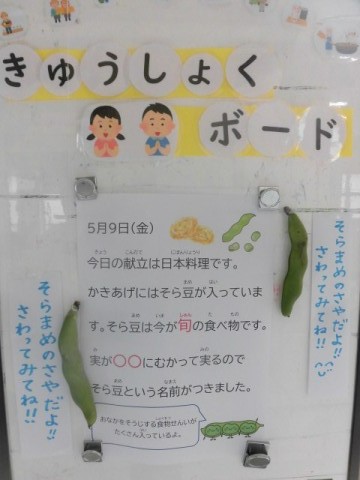 きゅうしょく
ボード
5月9日(金)
今日の献立は日本料理です。
かきあげにはそら豆が入っていま
す。そら豆は今が旬の食べ物です。
実が〇〇にむかって実るので
そら豆という名前がつきました。
おなかをそうじする食物せんいが
たくさん入っているよ。
そらまめのさやだよ!!
さわってみてね!!
そらまめのさやだよ!!
さわってみてね!!